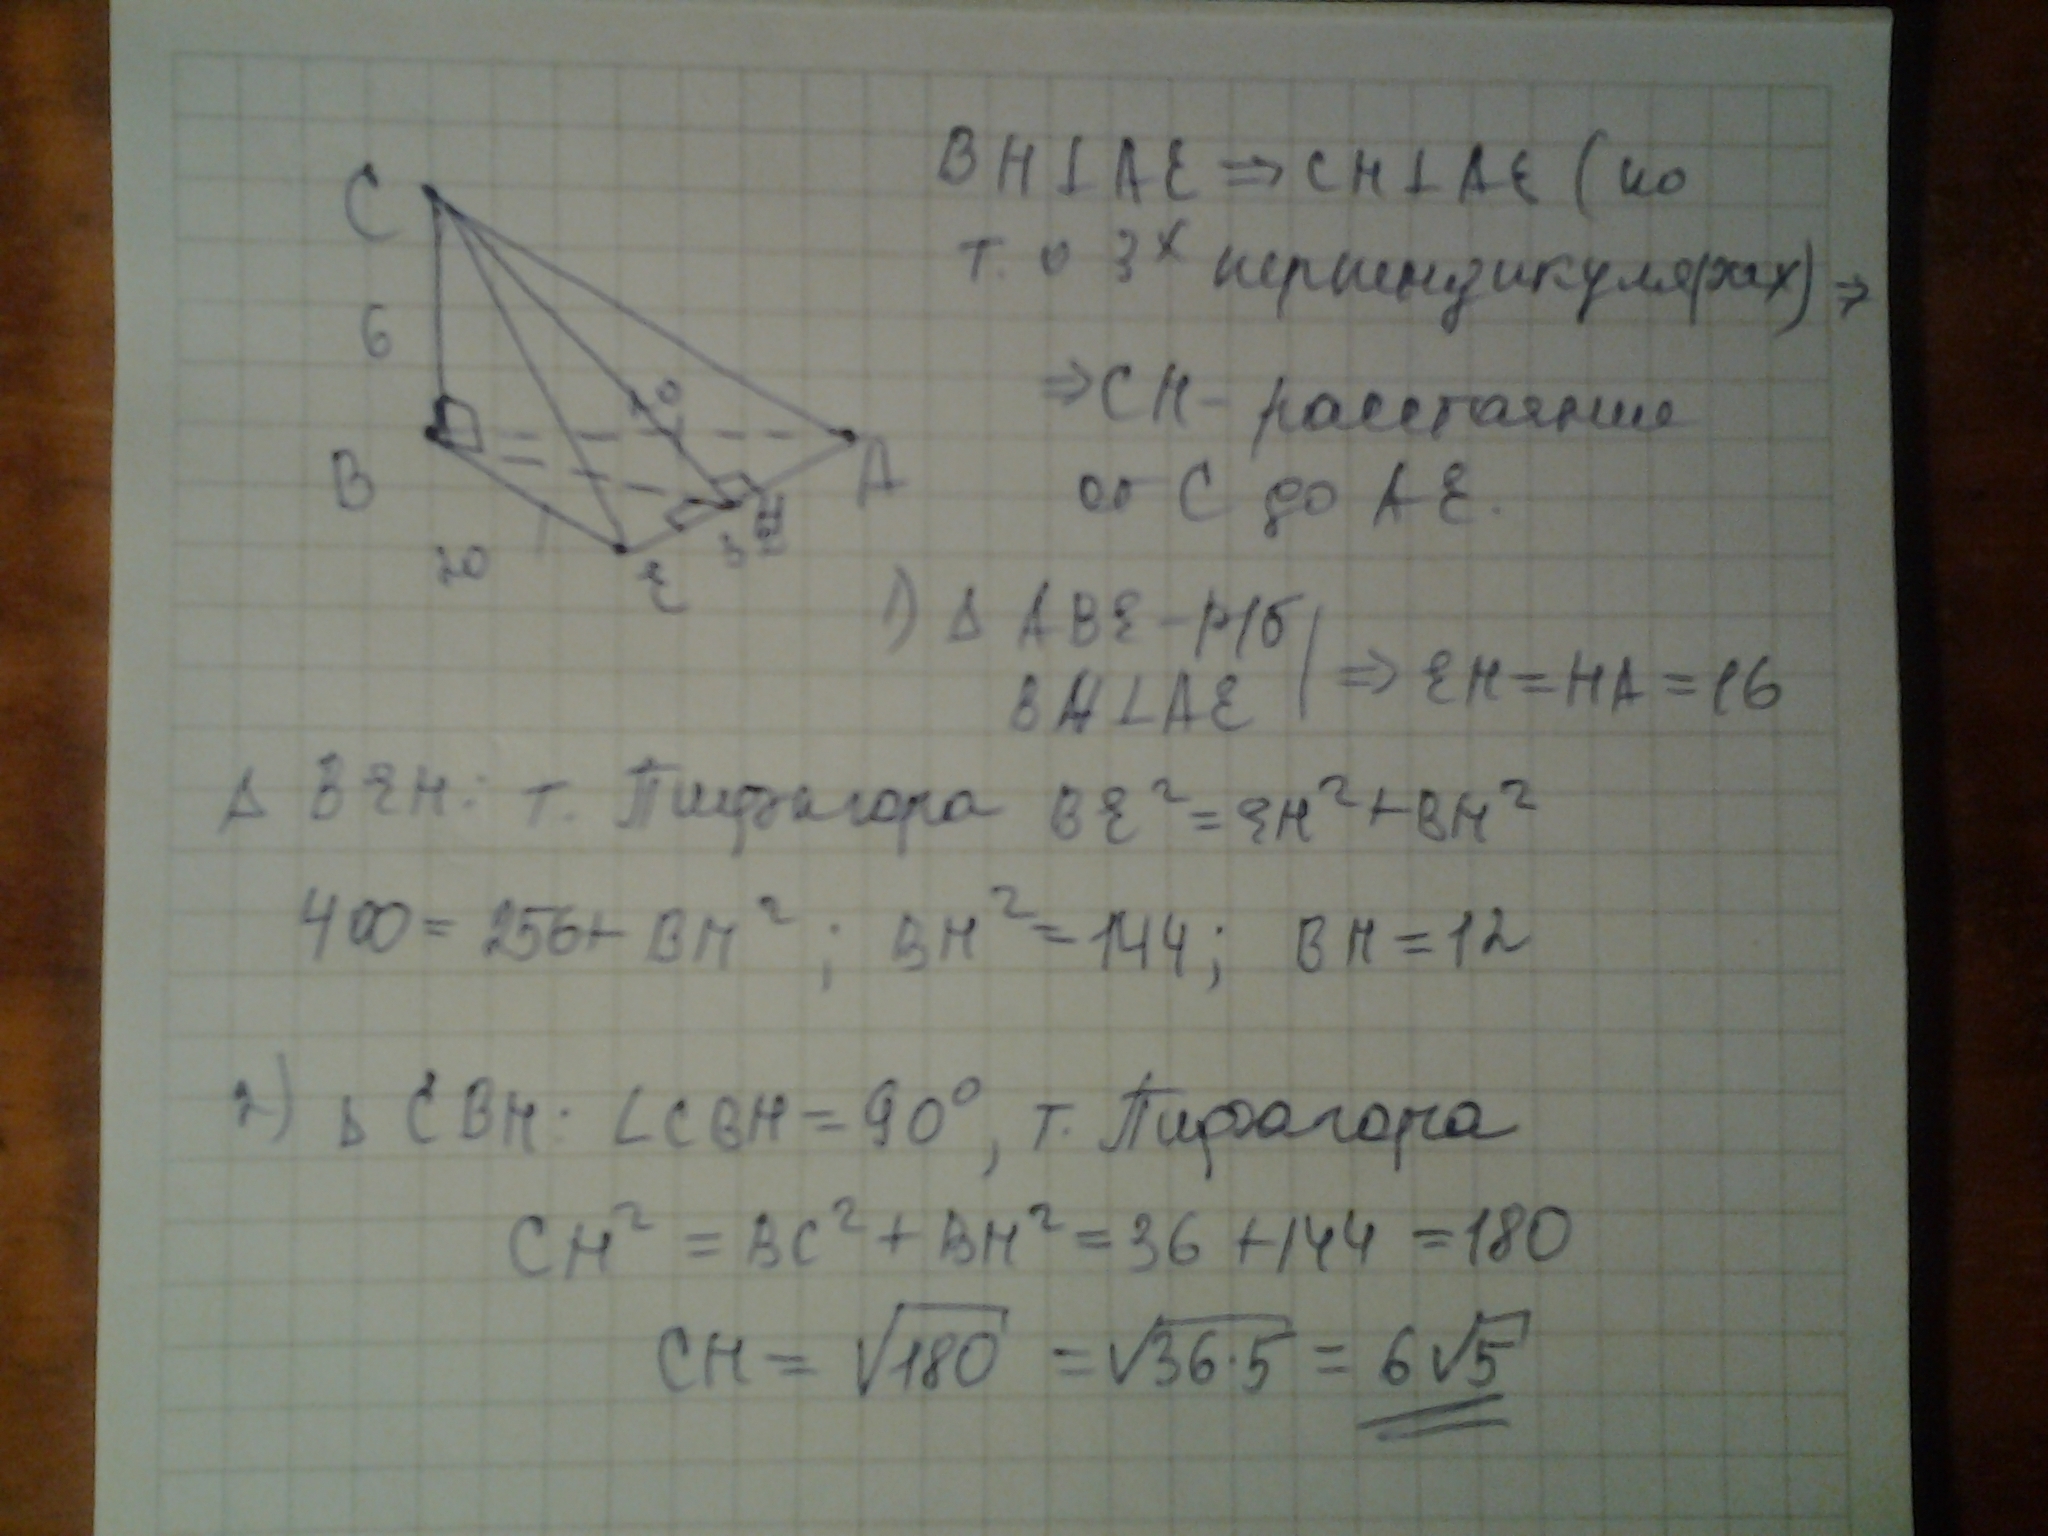 BH⊥AE ⇒ CH⊥AE (по
т. о 3х перпендикулярах) ⇒
⇒ CH - расстояние
от C до AE.
C
6
20
B
A
H
20
E
1) Δ ABE - р/б
BH⊥AE ⇒ EH = HA = 16
Δ BEH: т. Пифагора BE² = EH² + BH²
400 = 256 + BH²; BH² = 144; BH = 12
2) Δ CBH: ∠CBH = 90°, т. Пифагора
CH² = BC² + BH² = 36 + 144 = 180
CH = √180 = √36·5 = 6√5